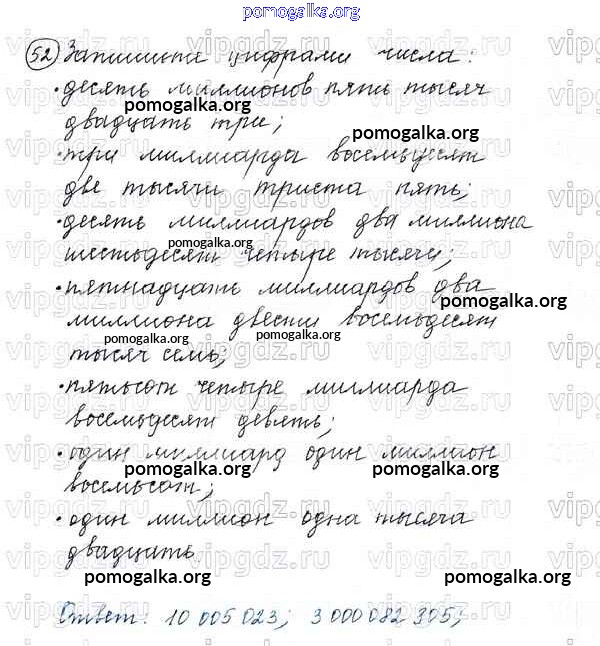 pomogalka.org
52 Запишите цифрами числа:
• десять миллионов пять тысяч
pomogalka.org
двадцать три;
pomogalka.org
• три миллиарда восемьдесят
две тысячи триста пять;
• десять миллиардов два миллиона
pomogalka.org
шестьдесят четыре тысячи;
• пятнадцать миллиардов два
pomogalka.org
миллиона двести восемьдесят
pomogalka.org
тысяч семь;
pomogalka.org
• пятьсот четыре миллиарда
восемьдесят девять;
• один миллиард один миллион
pomogalka.org pomogalka.org
восемьсот;
• один миллион одна тысяча
двадцать.
pomogalka.org pomogalka.org
Ответ: 10 005 023; 3 000 082 305;